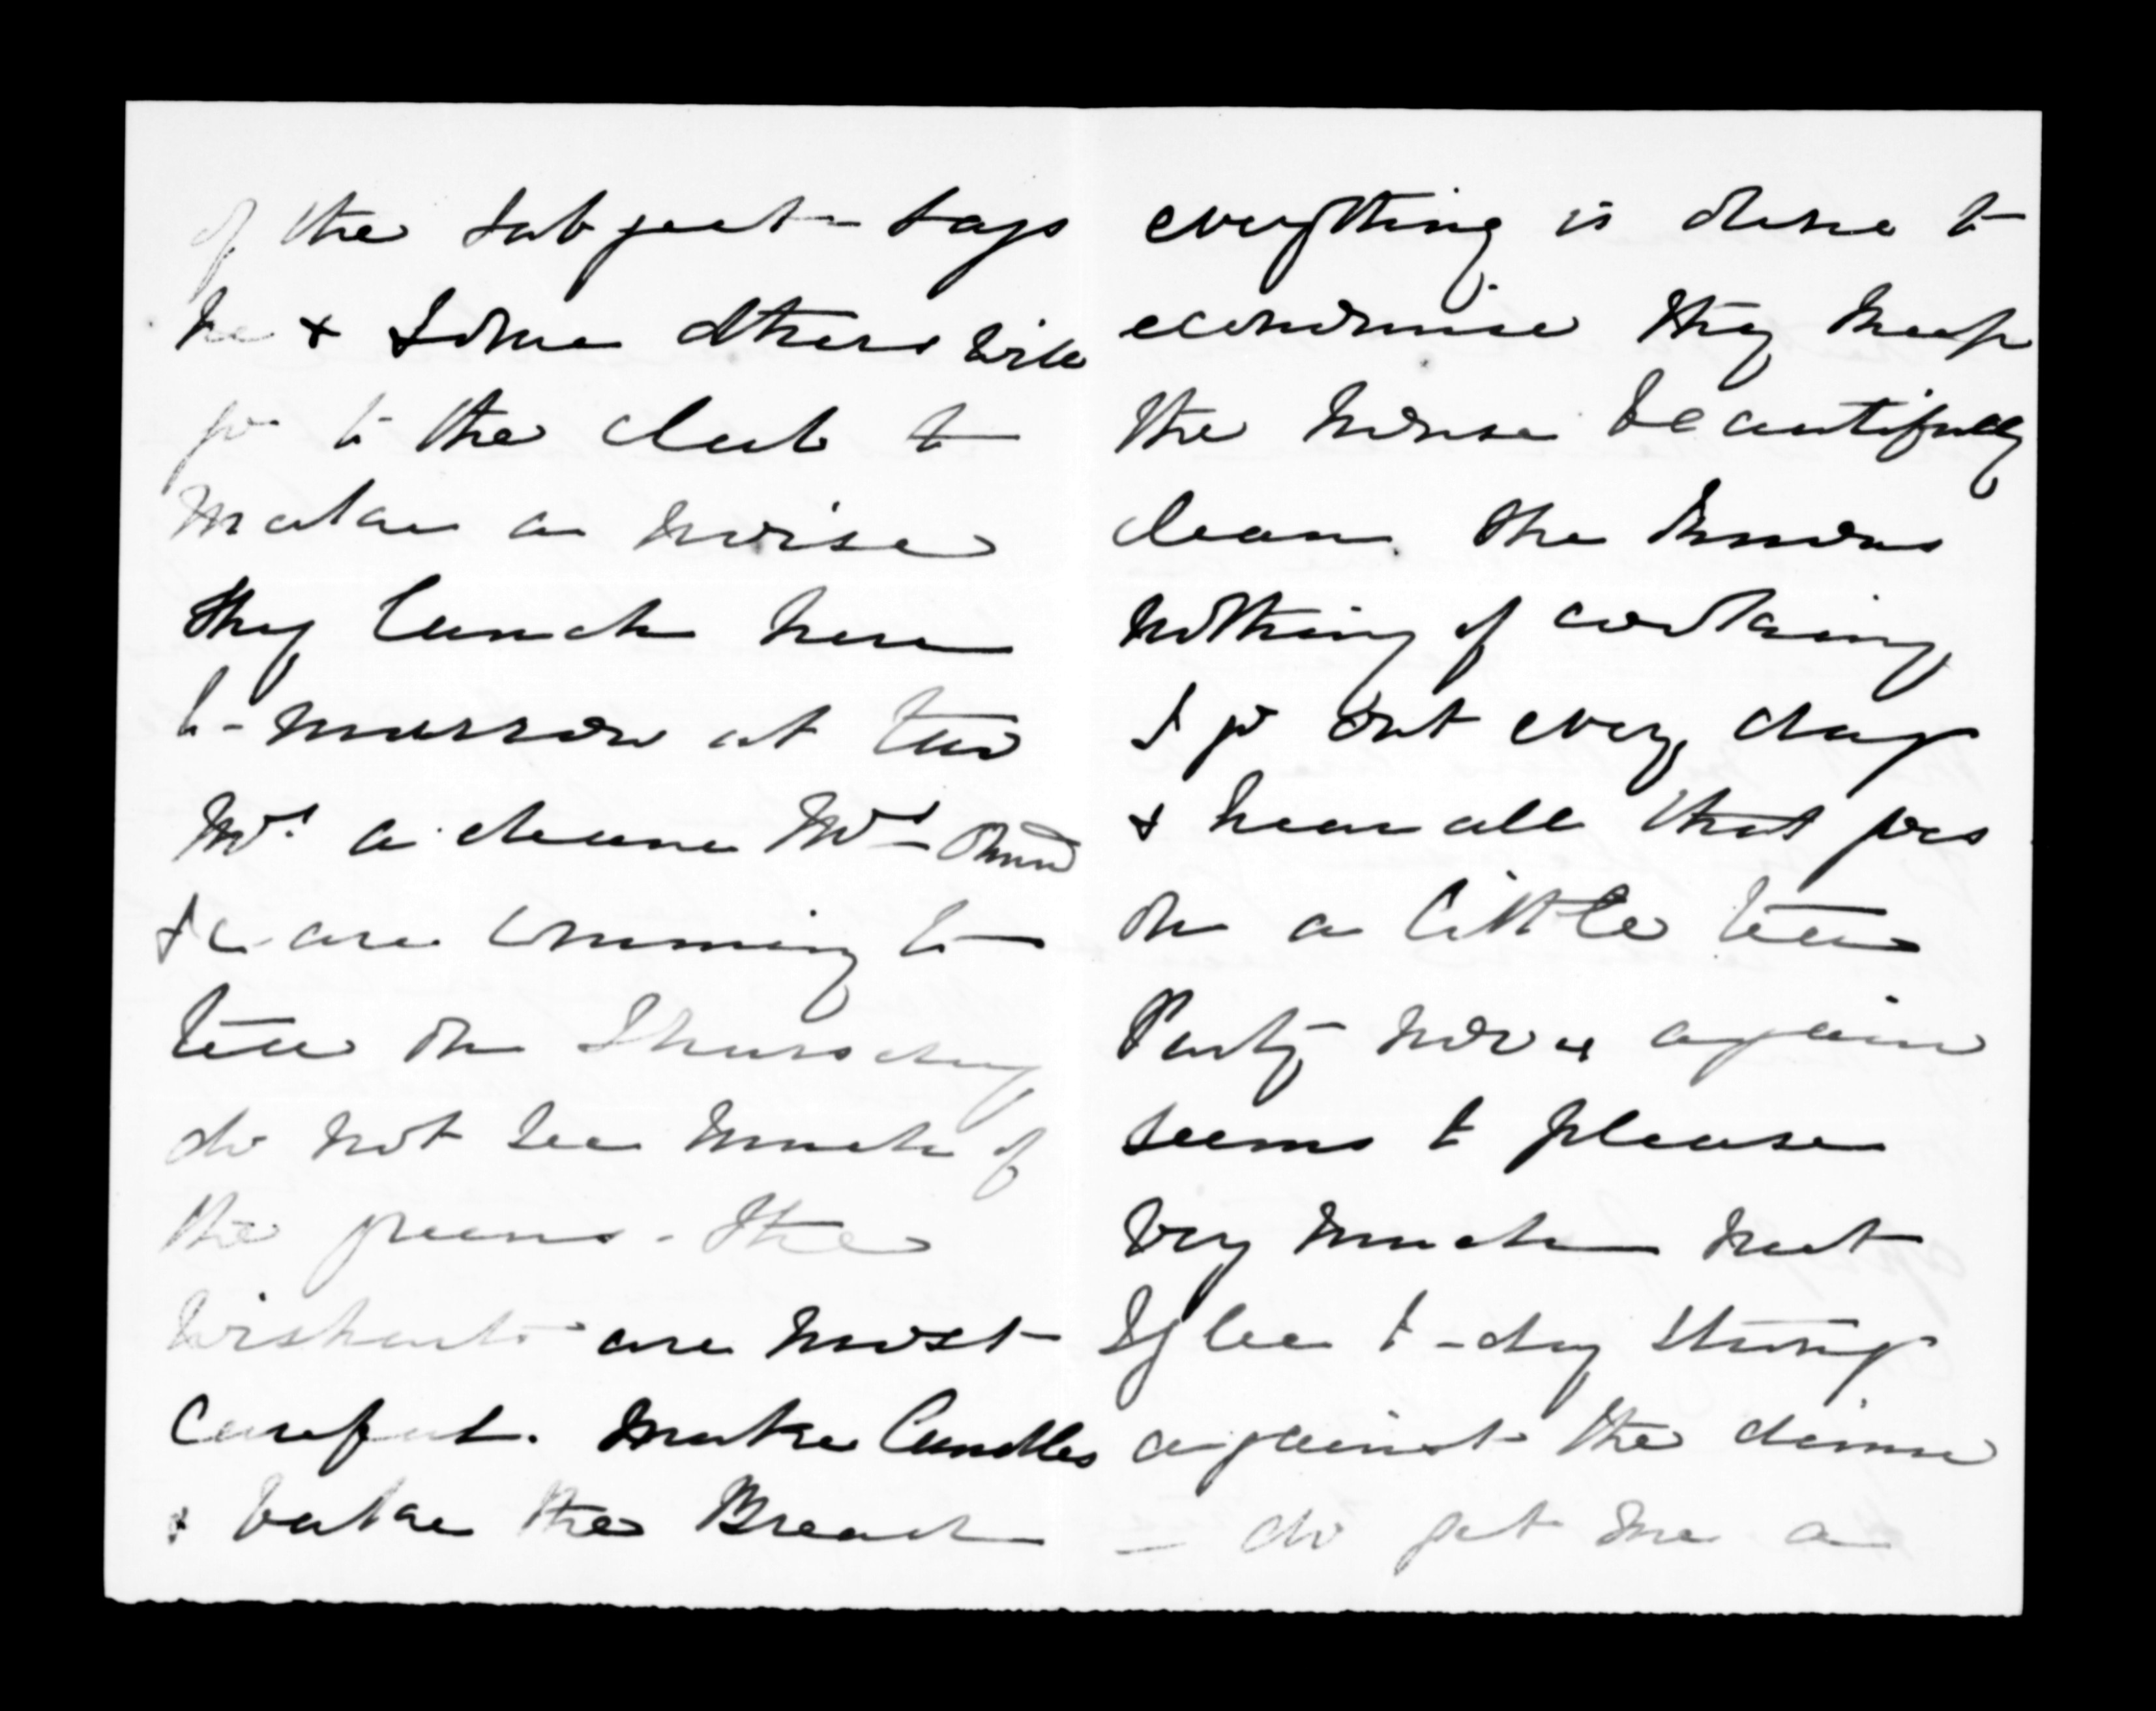 of the subject - says
he & some others will
go to the club to
make a noise
they lunch here
to-morrow at two
Mrs a deane Mrs Ormd
&c are comming to
tea on Thursday
do not see much of
the greens - The
Wisharts are most
Careful. make Candles
& bake the Bread
everything is done to
economise they keep
the house beautifully
clean. She knows
nothing of cooking
I go out every day
& hear all that goes
on a little tea
Party now & again
seems to please
very much but
I glee to-day strong
against the dinner
- do get me a